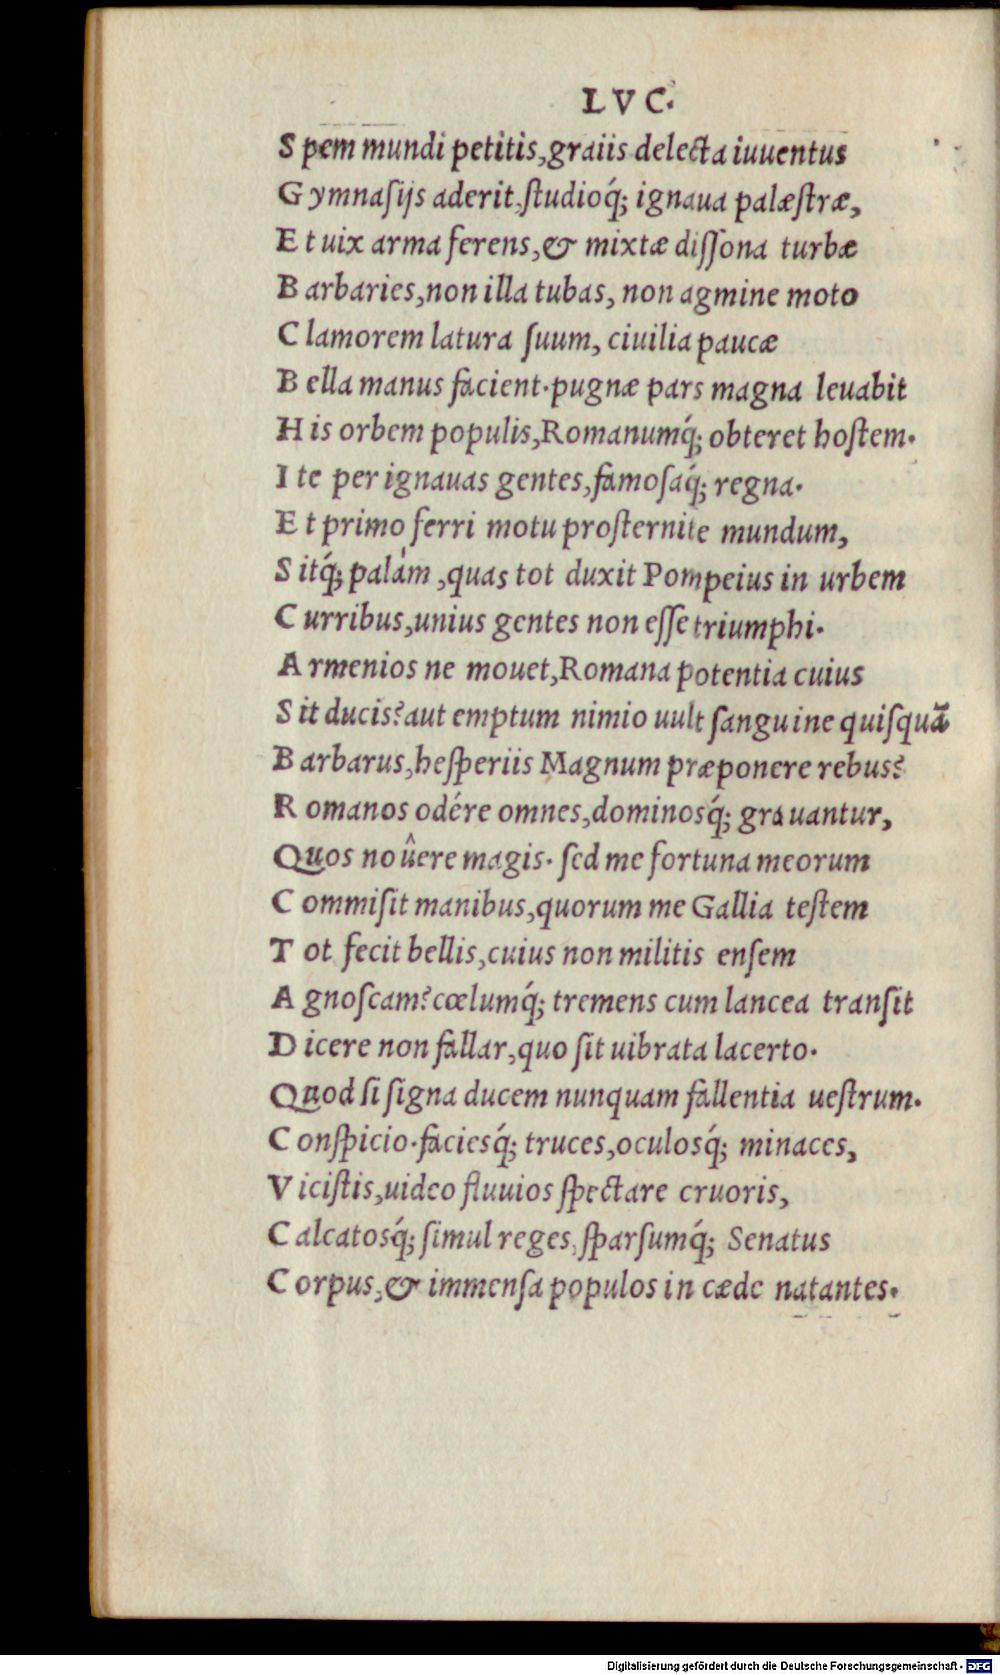 LVC.
S pem mundi petitis,graiis delecta iuuentus
G ymnaſijs aderit,ſtudioq́; ignaua palæſtræ,
E t uix arma ferens,& mixtæ diſſona turbæ
B arbaries,non illa tubas, non agmine moto
C lamorem latura ſuum, ciuilia paucæ
B ella manus facient.pugnæ pars magna leuabit
H is orbem populis,Romanumq́; obteret hoſtem.
I te per ignauas gentes,famoſaq́; regna.
E t primo ferri motu proſternite mundum,
S itq́; palàm ,quas tot duxit Pompeius in urbem
C urribus,unius gentes non eſſe triumphi.
A rmenios ne mouet,Romana potentia cuius
S it ducis?aut emptum nimio uult ſanguine quiſquã
B arbarus,heſperiis Magnum præponere rebus?
R omanos odére omnes,dominosq́; grauantur,
Quos noûere magis. ſed me fortuna meorum
C ommiſit manibus,quorum me Gallia teſtem
T ot fecit bellis,cuius non militis enſem
A gnoſcam?cœlumq́; tremens cum lancea tranſit
D icere non fallar,quo ſit uibrata lacerto.
Quod ſi ſigna ducem nunquam fallentia ueſtrum.
C onſpicio.faciesq́; truces,oculosq́; minaces,
V iciſtis,uideo fluuios ſpectare cruoris,
C alcatosq́; ſimul reges,ſparſumq́; Senatus
C orpus,& immenſa populos in cæde natantes.
Digitalisierung gefördert durch die Deutsche Forschungsgemeinschaft - DFG